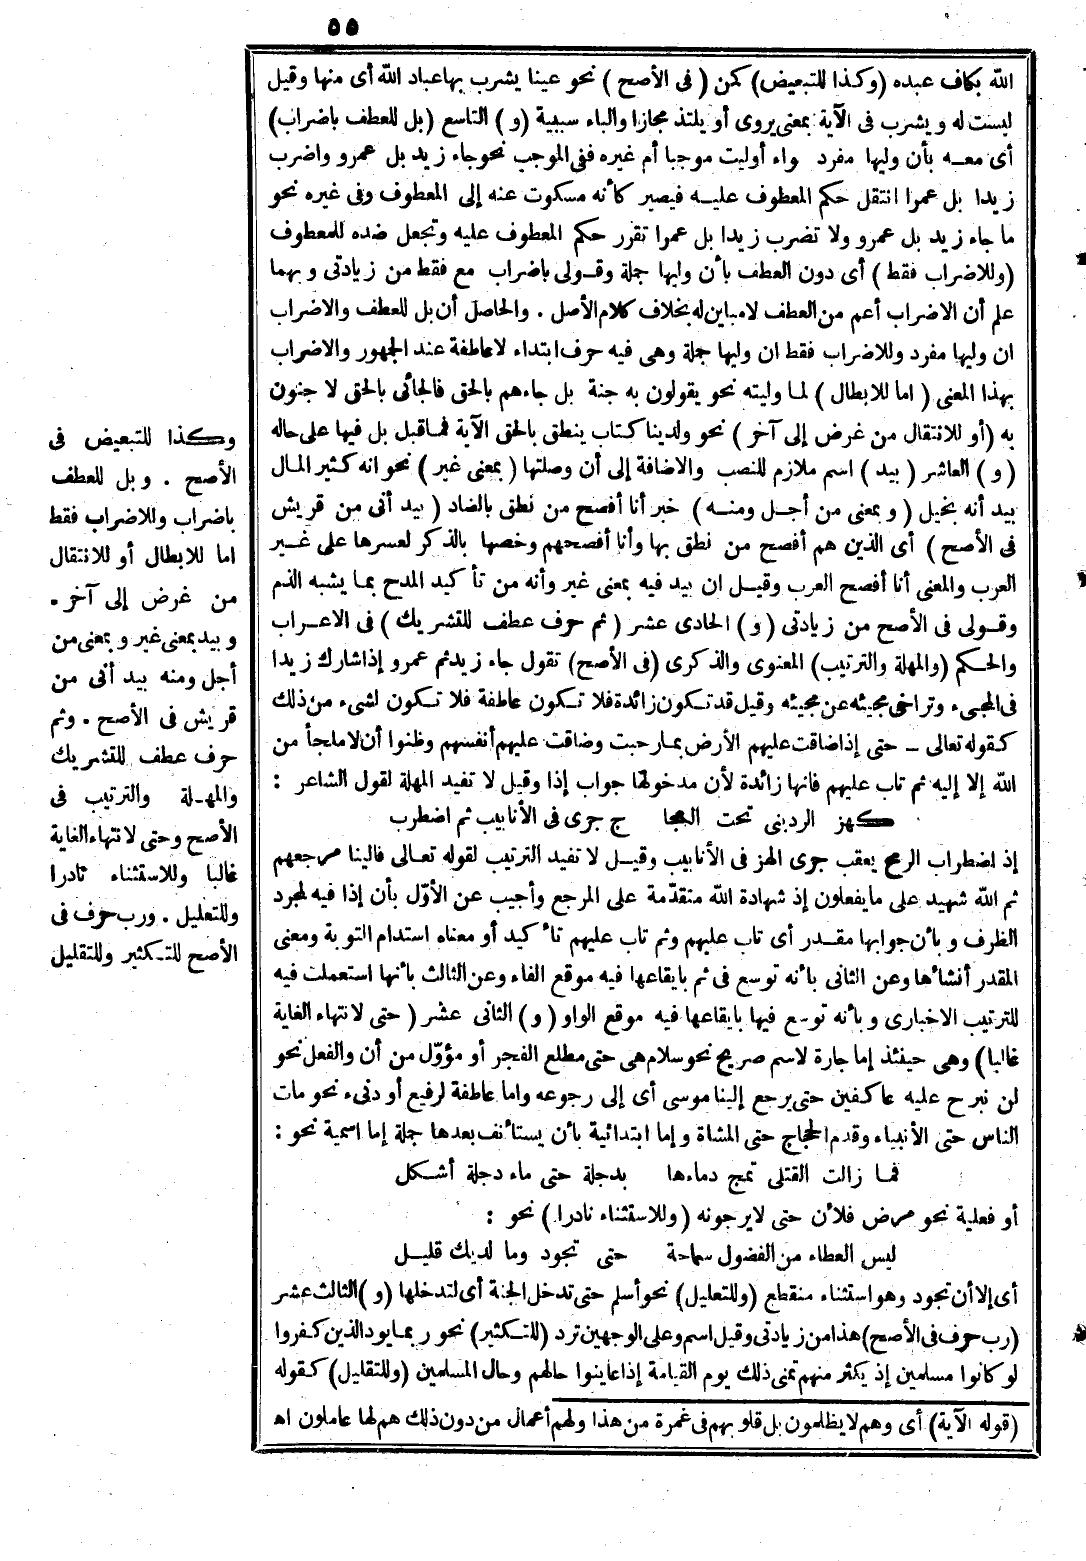 ٥٥
الله بكاف عبده (وكذا للتبعيض) كمن (فى الأصح) نحو عينا يشرب بها عباد الله أى منها وقيل
ليست له ويشرب فى الآية بمعنى يروى أو يلتذ مجازا والباء سببية (و) التاسع (بل للعطف باضراب)
أى معه بأن وليها مفرد واء أوليت موجبا أم غيره ففى الموجب نحو جاء زيد بل عمرو واضرب
زيدا بل عمرا انتقل حكم المعطوف عليه فيصير كأنه مسكوت عنه إلى المعطوف وفى غيره نحو
ما جاء زيد بل عمرو ولا تضرب زيدا بل عمرا تقرر حكم المعطوف عليه وتجعل ضده للمعطوف
(وللاضراب فقط) أى دون العطف بأن وليها جملة وقولى باضراب مع فقط من زيادتى وبهما
علم أن الاضراب أعم من العطف لا مباين له بخلاف كلام الأصل . والحاصل أن بل للعطف والاضراب
ان وليها مفرد وللاضراب فقط ان وليها جملة وهى فيه حرف ابتداء لا عاطفة عند الجمهور والاضراب
بهذا المعنى (اما للابطال) لما وليته نحو يقولون به جنة بل جاءهم بالحق فالجائى بالحق لا جنون
به (أو للانتقال من غرض إلى آخر) نحو ولدينا كتاب ينطق بالحق الآية فما قبل بل فيها على حاله
(و) العاشر (بيد) اسم ملازم للنصب والاضافة إلى أن وصلتها (بمعنى غير) نحو انه كثير المال
بيد أنه بخيل (وبمعنى من أجل ومنه) خبر أنا أفصح من نطق بالضاد (بيد أنى من قريش
فى الأصح) أى الذين هم أفصح من نطق بها وأنا أفصحهم وخصها بالذكر لعسرها على غير
العرب والمعنى أنا أفصح العرب وقيل ان بيد فيه بمعنى غير وأنه من تأكيد المدح بما يشبه الذم
وقولى فى الأصح من زيادتى (و) الحادى عشر (ثم حرف عطف للتشريك) فى الاعراب
والحكم (والمهلة والترتيب) المعنوى والذكرى (فى الأصح) تقول جاء زيد ثم عمرو إذا شارك زيدا
فى المجىء وتراخى مجيئه عن مجيئه وقيل قد تكون زائدة فلا تكون عاطفة فلا تكون لشىء من ذلك
كقوله تعالى – حتى إذا ضاقت عليهم الأرض بما رحبت وضاقت عليهم أنفسهم وظنوا أن لا ملجأ من
الله إلا إليه ثم تاب عليهم فانها زائدة لأن مدخولها جواب إذا وقيل لا تفيد المهلة لقول الشاعر :
كهز الردينى تحت العجا ج جرى فى الأنابيب ثم اضطرب
إذ اضطراب الرمح يعقب جرى الهز فى الأنابيب وقيل لا تفيد الترتيب لقوله تعالى فالينا مرجعهم
ثم الله شهيد على ما يفعلون إذ شهادة الله متقدّمة على المرجع وأجيب عن الأوّل بأن إذا فيه لمجرد
الظرف وبأن جوابها مقدر أى تاب عليهم وثم تاب عليهم تأكيد أو معناه استدام التوبة ومعنى
المقدر أنشأها وعن الثانى بأنه توسع فى ثم بايقاعها فيه موقع الفاء وعن الثالث بأنها استعملت فيه
للترتيب الاخبارى وبأنه توسع فيها بايقاعها فيه موقع الواو (و) الثانى عشر (حتى لانتهاء الغاية
غالبا) وهى حينئذ إما جارة لاسم صريح نحو سلام هى حتى مطلع الفجر أو مؤوّل من أن والفعل نحو
لن نبرح عليه عاكفين حتى يرجع إلينا موسى أى إلى رجوعه واما عاطفة لرفيع أو دنىء نحو مات
الناس حتى الأنبياء وقدم الحجاج حتى المشاة وإما ابتدائية بأن يستأنف بعدها جملة إما اسمية نحو :
فما زالت القتلى تمج دماءها بدجلة حتى ماء دجلة أشكل
أو فعلية نحو مرض فلان حتى لا يرجونه (وللاستثناء نادرا) نحو :
ليس العطاء من الفضول سماحة حتى تجود وما لديك قليل
أى إلا أن تجود وهو استثناء منقطع (وللتعليل) نحو أسلم حتى تدخل الجنة أى لتدخلها (و) الثالث عشر
(رب حرف فى الأصح) هذا من زيادتى وقيل اسم وعلى الوجهين ترد (للتكثير) نحو ربما يود الذين كفروا
لو كانوا مسلمين إذ يكثر منهم تمنى ذلك يوم القيامة إذا عاينوا حالهم وحال المسلمين (وللتقليل) كقوله
(قوله الآية) أى وهم لا يظلمون بل قلوبهم فى غمرة من هذا ولهم أعمال من دون ذلك هم لها عاملون اه
وكذا للتبعيض فى
الأصح . وبل للعطف
باضراب وللاضراب فقط
اما للابطال أو للانتقال
من غرض إلى آخر .
وبيد بمعنى غير وبمعنى من
أجل ومنه بيد أنى من
قريش فى الأصح . وثم
حرف عطف للتشريك
والمهلة والترتيب فى
الأصح وحتى لانتهاء الغاية
غالبا وللاستثناء نادرا
وللتعليل . ورب حرف فى
الأصح للتكثير وللتقليل